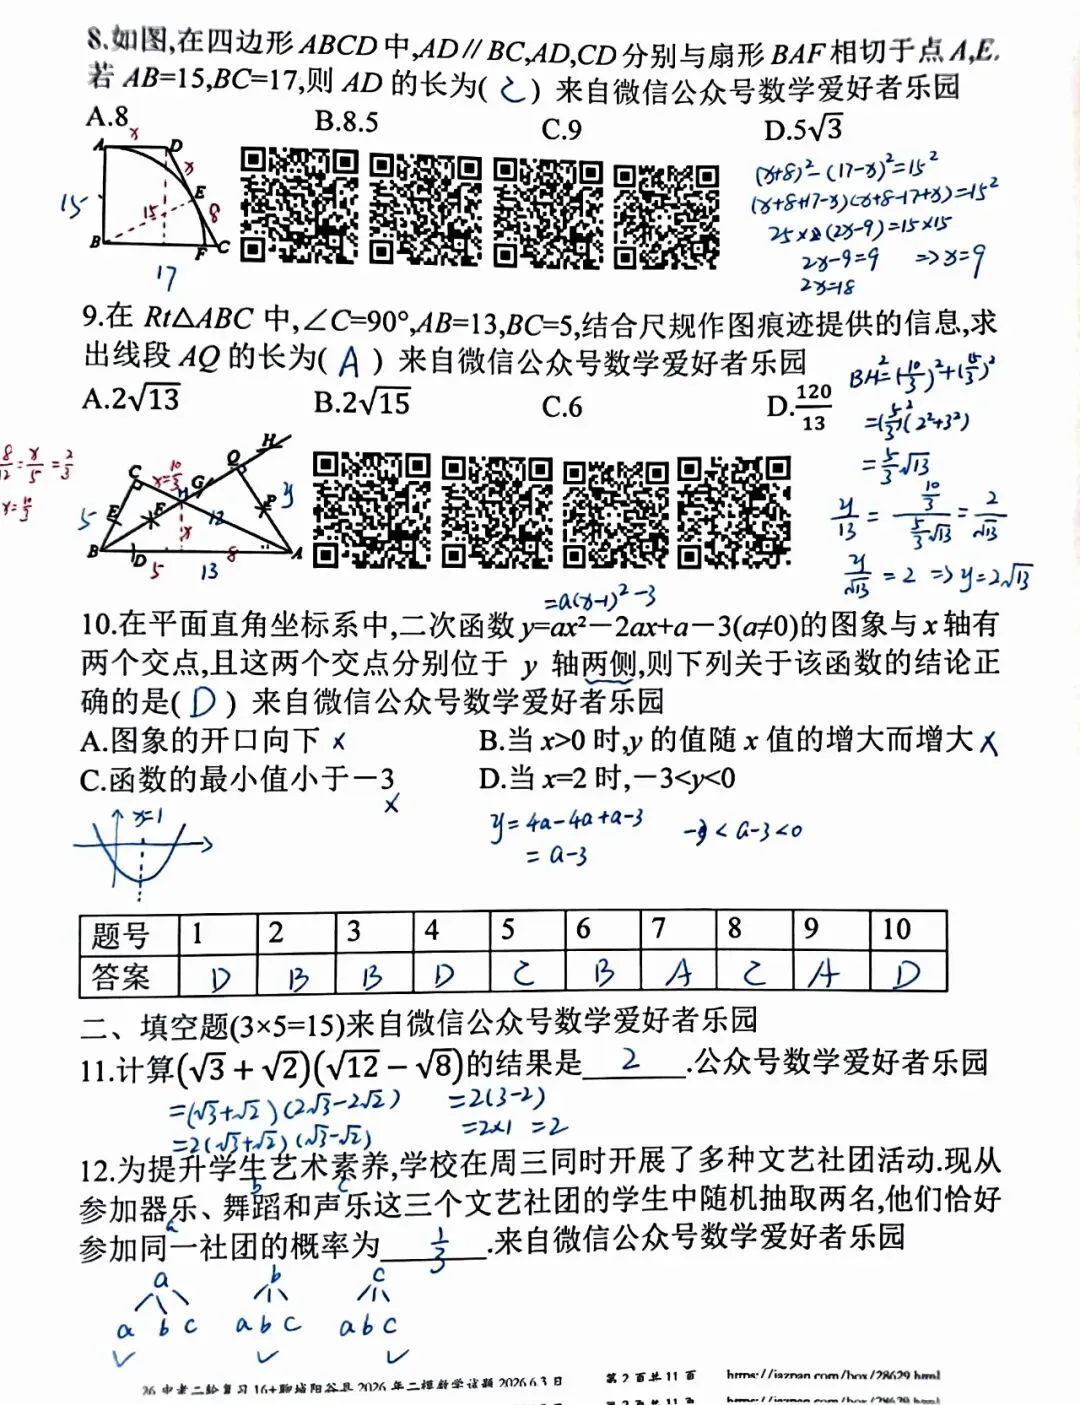 8.如图,在四边形ABCD中,AD∥BC,AD,CD分别与扇形BAF相切于点A,E.
若 AB=15,BC=17,则 AD 的长为( C ) 来自微信公众号数学爱好者乐园
A.8 B.8.5 C.9 D.5√3
x
A D
x
E
15 15 8
B F C
17
(x+8)²-(17-x)²=15²
(x+8+17-x)(x+8-17+x)=15²
25×(2x-9)=15×15
2x-9=9 ⇒x=9
2x=18
9.在 Rt△ABC 中,∠C=90°,AB=13,BC=5,结合尺规作图痕迹提供的信息,求
出线段 AQ 的长为( A ) 来自微信公众号数学爱好者乐园
A.2√13 B.2√15 C.6 D.120/13
BH²=(10/3)²+(15/3)²
=(5/3)²(2²+3²)
=5/3√13
y/13=(10/3)/(5/3√13)=2/√13
y/√13=2⇒y=2√13
8/12=x/5=2/3
x=10/3
H
Q
C x=10/3 G y
5 E F 12 P
x
B D 8 A
5 13
=a(x-1)²-3
10.在平面直角坐标系中,二次函数y=ax²－2ax+a－3(a≠0)的图象与x轴有
两个交点,且这两个交点分别位于 y 轴两侧,则下列关于该函数的结论正
确的是( D ) 来自微信公众号数学爱好者乐园
A.图象的开口向下 × B.当 x>0 时,y 的值随 x 值的增大而增大 ×
C.函数的最小值小于－3 × D.当 x=2 时,－3<y<0
x=1
y=4a-4a+a-3 -3<a-3<0
=a-3
题号 1 2 3 4 5 6 7 8 9 10
答案 D B B D C B A C A D
二、填空题(3×5=15)来自微信公众号数学爱好者乐园
11.计算(√3+√2)(√12－√8)的结果是 2 .公众号数学爱好者乐园
=(√3+√2)(2√3-2√2) =2(3-2)
=2(√3+√2)(√3-√2) =2×1 =2
12.为提升学生艺术素养,学校在周三同时开展了多种文艺社团活动.现从
b c
参加器乐、舞蹈和声乐这三个文艺社团的学生中随机抽取两名,他们恰好
a
参加同一社团的概率为 1/3 .来自微信公众号数学爱好者乐园
a b c
a b c a b c a b c
✓ ✓ ✓
26 中考二轮复习 16+聊城阳谷县 2026 年二模数学试题 2026.6.3 日 第 2 页共 11 页